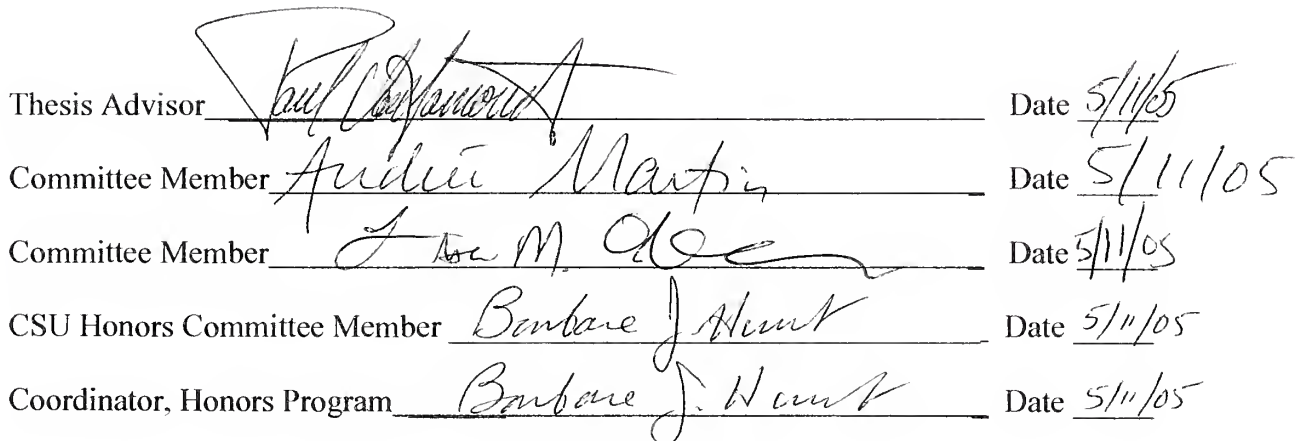 Thesis Advisor Paul Date 5/11/05
Committee Member Andrée Martin Date 5/11/05
Committee Member M. Date 5/11/05
CSU Honors Committee Member Barbara J. Hunt Date 5/11/05
Coordinator, Honors Program Barbara J. Hunt Date 5/11/05